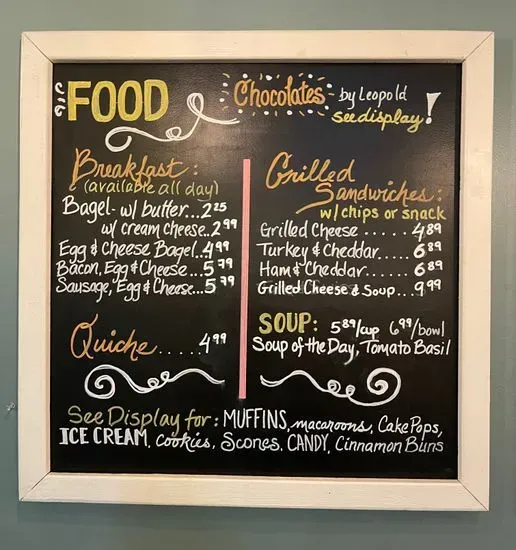 FOOD
Chocolates by Leopold
see display!
Breakfast:
(available all day)
Bagel - w/ butter...2 25
w/ cream cheese..2 99
Egg & Cheese Bagel..4 99
Bacon, Egg & Cheese...5 79
Sausage, Egg & Cheese...5 79
Quiche.....4 99
Grilled
Sandwiches:
w/ chips or snack
Grilled Cheese.....4 89
Turkey & Cheddar.....6 89
Ham & Cheddar.....6 89
Grilled Cheese & Soup...9 99
SOUP: 5 89/cup 6 99/bowl
Soup of the Day, Tomato Basil
See Display for: MUFFINS, macaroons, Cake Pops,
ICE CREAM, Cookies, Scones, CANDY, Cinnamon Buns